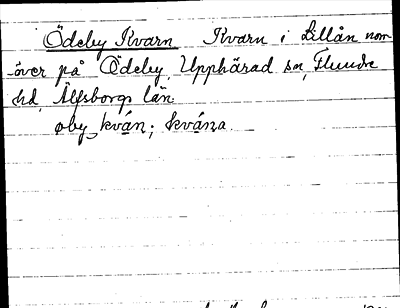 Ödeby Kvarn Kvarn i Lillån norr
över på Ödeby, Upphärad sn, Flundre
hd, Älfsborgs län
øby kván; kvána